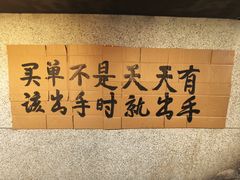 买单不是天天有
该出手时就出手